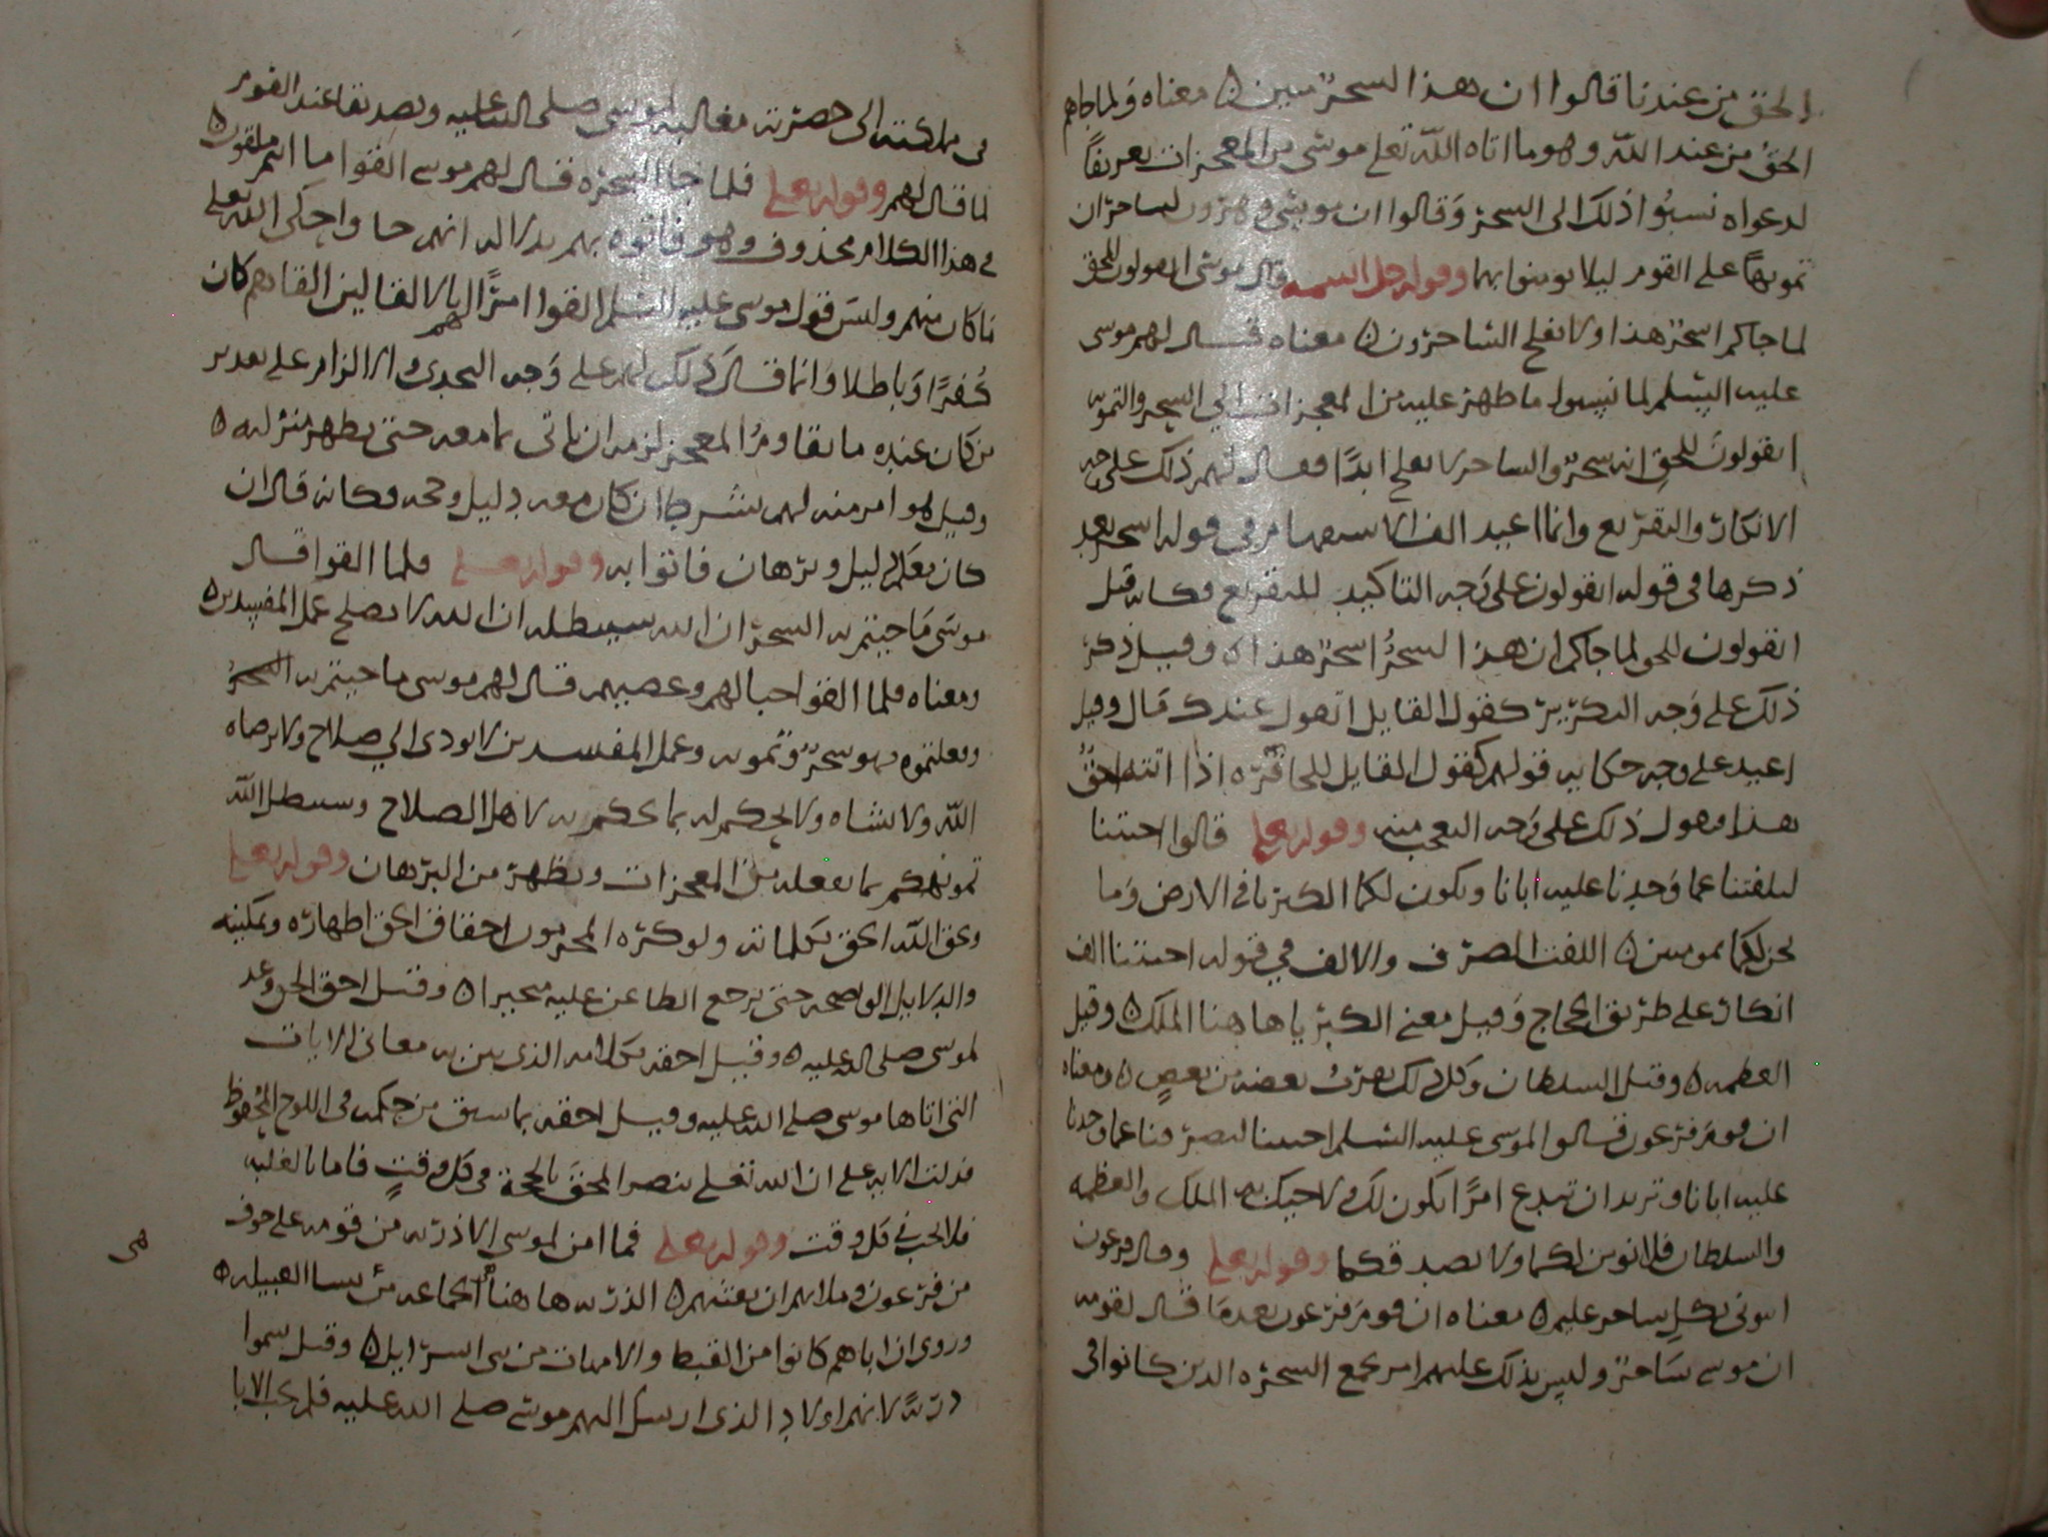 الحق من عندنا قالوا ان هذا السحر مبين ٥ معناه ولما جاهم
الحق من عند الله وهو ما اتاه الله تعلى موسى من المعجزات تعريفا
لدعواه نسبوا ذلك الى السحر وقالوا ان موسى وهرون لساحران
تمويها على القوم ليلا يومنوا بهما وقوله جل اسمه قال موسى اتقولون للحق
لما جاكم اسحر هذا ولا يفلح الساحرون ٥ معناه فقال لهم موسى
عليه السلم لما نسبوا ما ظهر عليه من المعجزات الى السحر والتمويه
اتقولون للحق انه سحر والساحر لا يفلح ابدا فقال لهم ذلك على وجه
الانكار والتقريع وانما اعيد الف الاستفهام في قوله اسحر بعد
ذكرها في قوله اتقولون على وجه التاكيد للتقريع فكانه قيل
اتقولون للحق لما جاكم ان هذا لسحر اسحر هذا ٥ وقيل ذكر
ذلك على وجه التكرير كقول القايل اتقول عندك مال وقيل
اعيد على وجه حكايه قولهم كقول القايل للجايزه اذا اتته احق
هذا فيقول ذلك على وجه التعجب منه وقوله تعلى قالوا اجيتنا
لتلفتنا عما وجدنا عليه ابانا وتكون لكما الكبريا في الارض وما
نحن لكما بمومنين ٥ اللفت الصرف والالف في قوله اجيتنا الف
انكار على طريق الحجاج وقيل معنى الكبريا هاهنا الملك ٥ وقيل
العظمه ٥ وقيل السلطان وكل ذلك يقرب بعضه من بعض ٥ ومعناه
ان قوم فرعون قالوا لموسى عليه السلم اجيتنا لتصرفنا عما وجدنا
عليه ابانا وتريد ان تبدع امرا يكون لك ولاخيك به الملك والعظمه
والسلطان فلا نومن لكما ولا نصدقكما وقوله تعلى وقال فرعون
ايتوني بكل ساحر عليم ٥ معناه ان قوم فرعون بعدما قال لقومه
ان موسى ساحر ولبس بذلك عليهم امر بجمع السحره الدين كانوا في
في مملكته الى حضرته مغالبه لموسى صلى الله عليه وتصديقا عند القوم
لما قال لهم وقوله تعلى فلما جا السحره قال لهم موسى القوا ما انتم ملقون ٥
في هذا الكلام محذوف وهو فاتوه بهم بدلاله انهم جاوا وحكى الله تعلى
ما كان منهم وليس قول موسى عليه السلم القوا امرا لهم بالالقا لان القاهم كان
كفرا وباطلا وانما قال ذلك لهم على وجه التحدي والالزام على تقدير
من كان عنده ما يقاوم المعجز لزمه ان ياتي بما معه حتى يظهر منزلته ٥
وقيل هو امر منه لهم بشرط ان كان معه دليل وحجه وكانه قال ان
كان معكم دليل وبرهان فاتوا به وقوله تعلى فلما القوا قال
موسى ما جيتم به السحر ان الله سيبطله ان الله لا يصلح عمل المفسدين ٥
ومعناه فلما القوا حبالهم وعصيهم قال لهم موسى ما جيتم به السحر
وفعلتموه فهو سحر وتمويه وعمل المفسدين لا يودى الى صلاح ولا يرضاه
الله ولا يشاه ولا يحكم له بما يحكم به لاهل الصلاح وسيبطل الله
تمويهكم بما يفعله من المعجزات ويظهر من البرهان وقوله تعلى
ويحق الله الحق بكلماته ولو كره المجرمون احقاق الحق اظهاره وتمكينه
والدلايل الواضحه حتى يرجع الطاعن عليه متحيرا ٥ وقيل احق الحق وعد
لموسى صلى الله عليه ٥ وقيل احقه بكلامه الذي يبين به معاني الايات
التي اتاها موسى صلى الله عليه وقيل احقه بما سبق من حكمه في اللوح المحفوظ
فدلت الايه على ان الله تعلى ينصر المحق بالحجة في كل وقت فاما بالغلبه
فلا يجب في كل وقت وقوله تعلى فما امن لموسى الا ذريه من قومه على خوف
من فرعون وملايهم ان يفتنهم ٥ الذريه هاهنا الجماعه من نسا القبيله ٥
وروى ان اباهم كانوا من القبط والامهات من بني اسرايل ٥ وقيل سموا
ذرية لانهم اولاد الذي ارسل اليهم موسى صلى الله عليه فلم يجب الابا